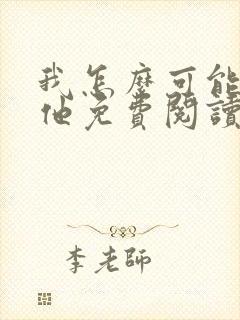 我怎麼可能
他免費閱讀
李老師